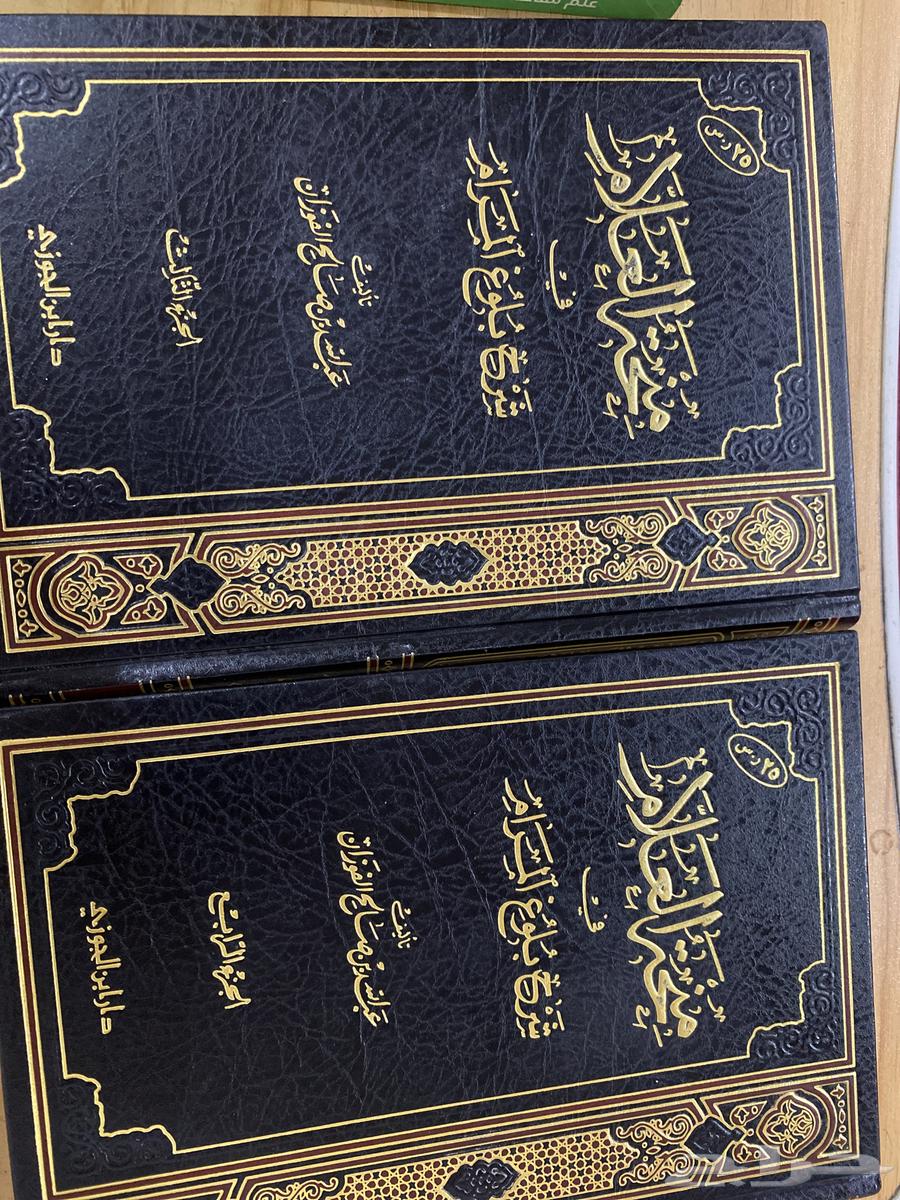 علم
٢٥ ر.س
مِنْحَةُ العَلَّامِ
فِي
شَرْحِ بُلُوغِ المَرَامِ
تأليف
عَبْدِ اللهِ بْنِ صَالِح الفَوْزَان
الجُزْءُ الثَّالِثُ
دار ابن الجوزي
٢٥ ر.س
مِنْحَةُ العَلَّامِ
فِي
شَرْحِ بُلُوغِ المَرَامِ
تأليف
عَبْدِ اللهِ بْنِ صَالِح الفَوْزَان
الجُزْءُ الرَّابِعُ
دار ابن الجوزي
حراج